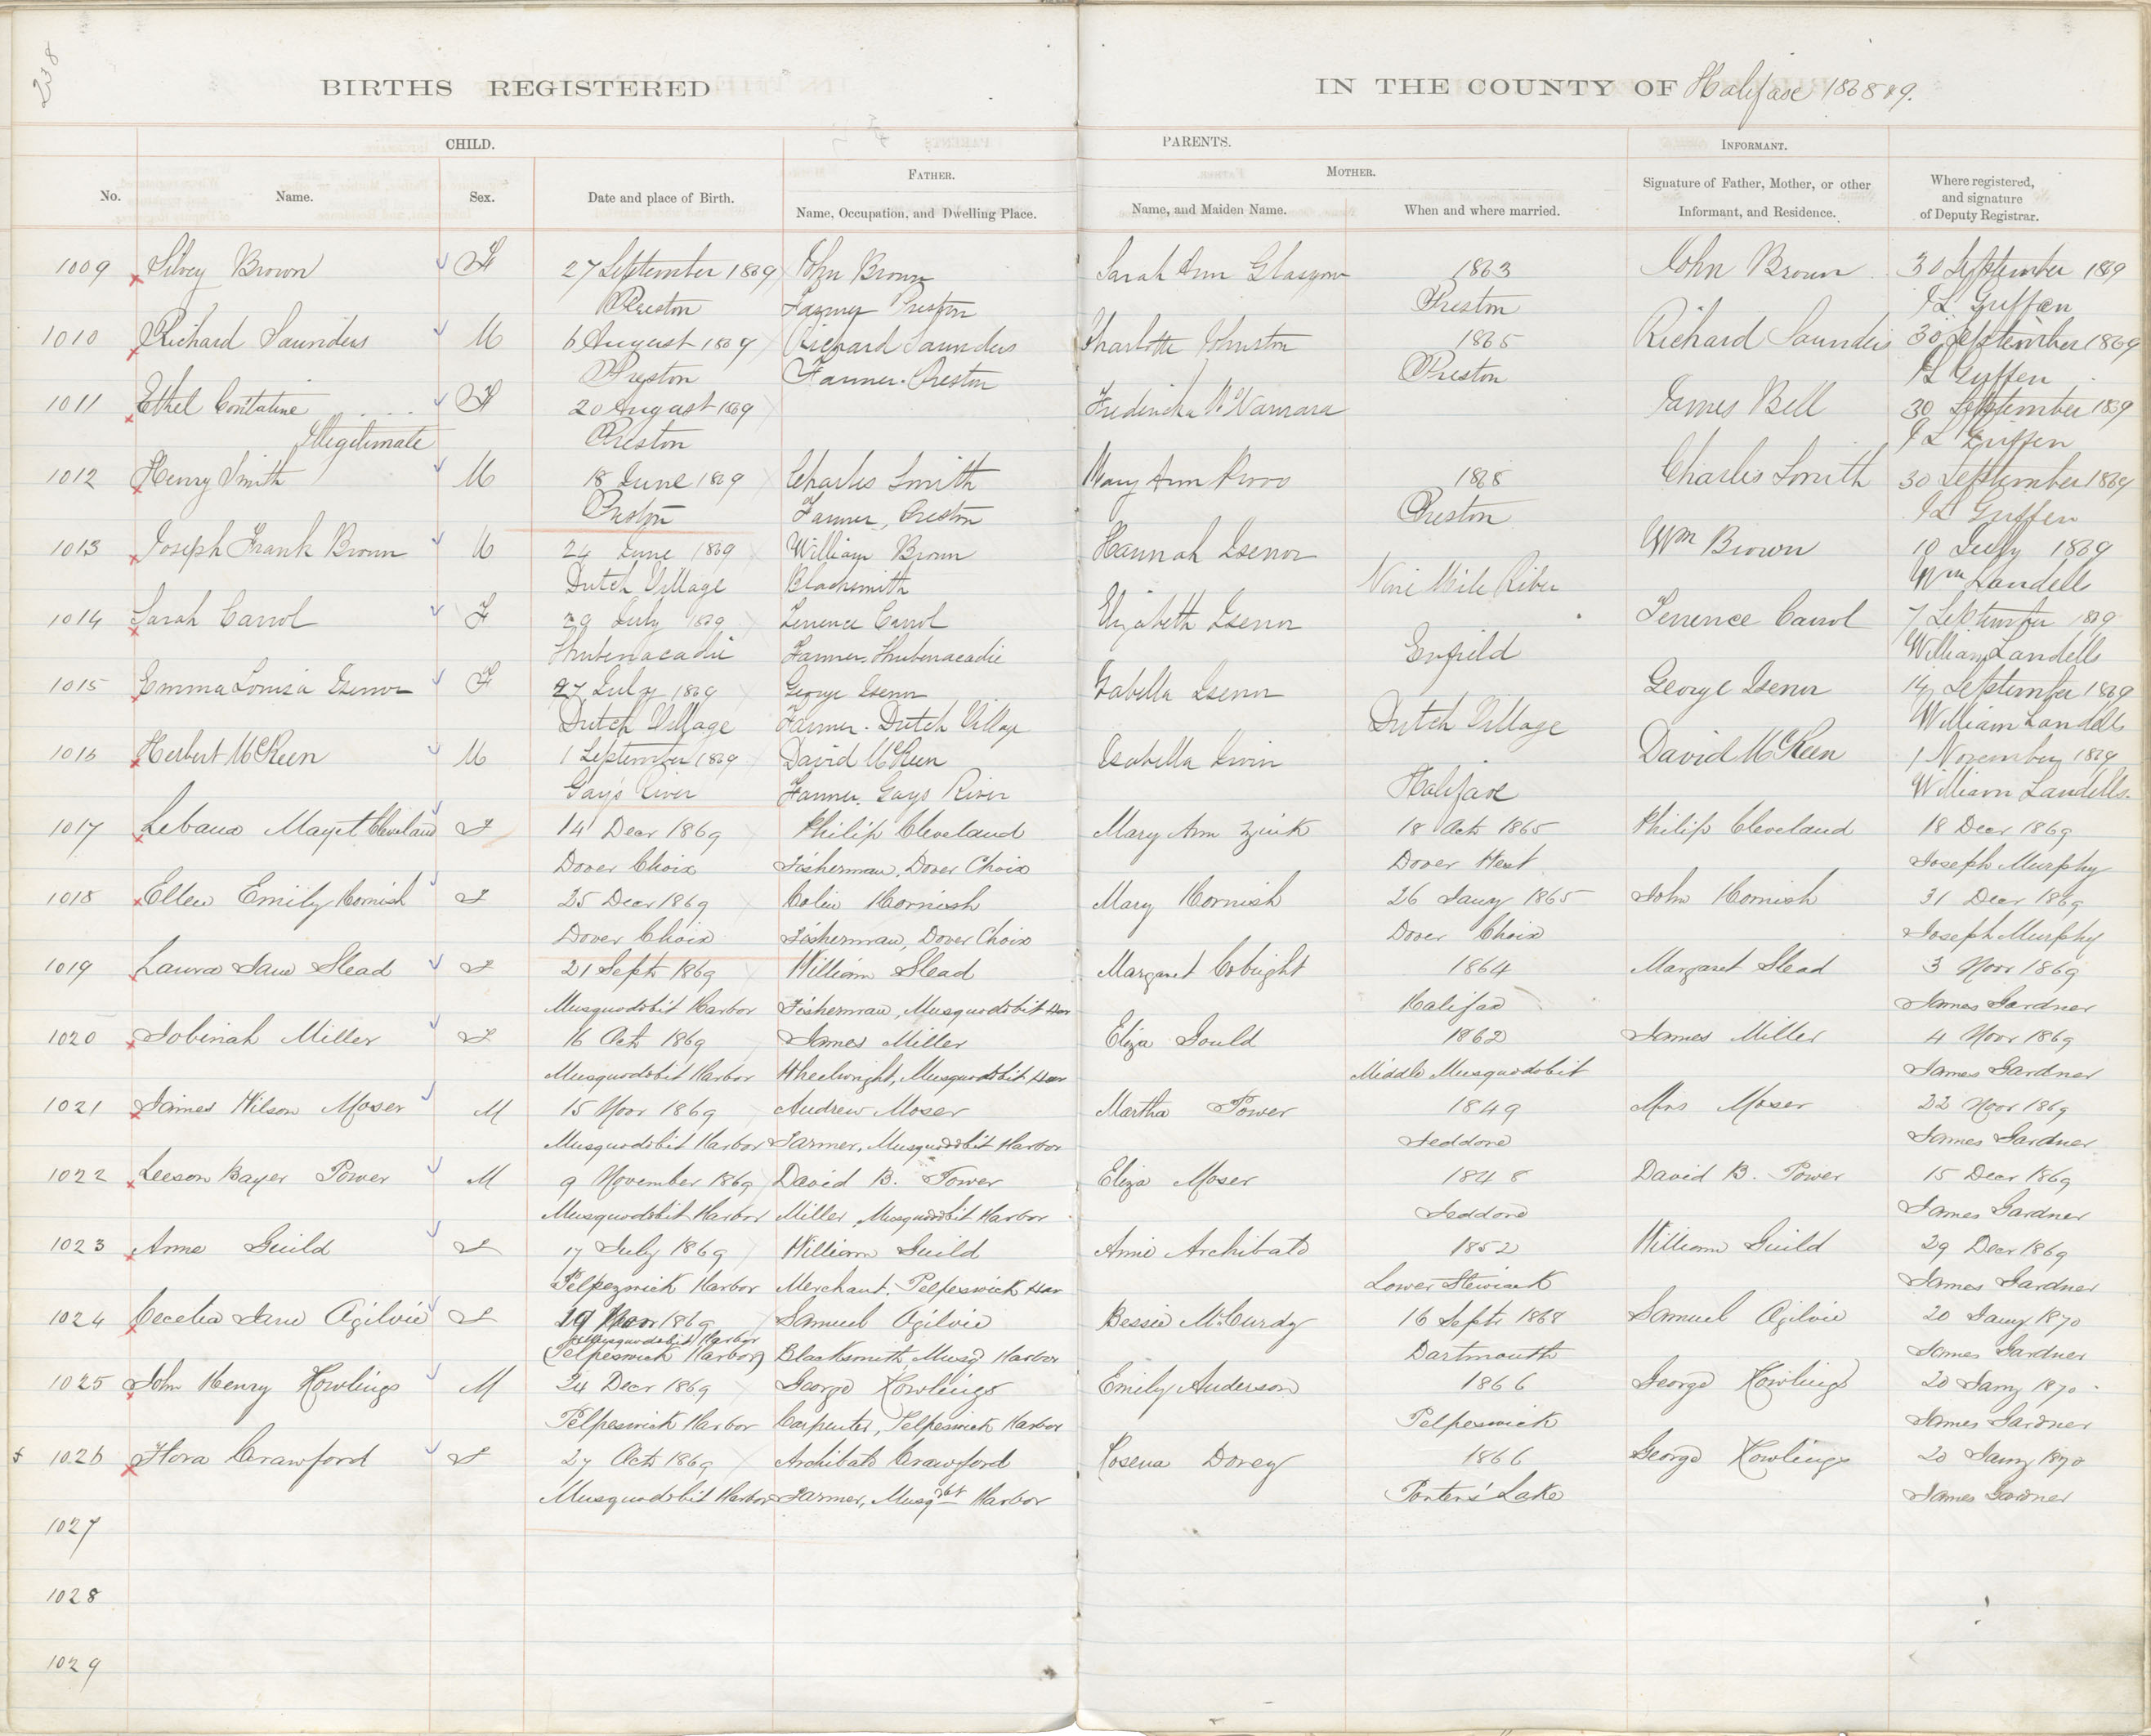 238
BIRTHS REGISTERED IN THE COUNTY OF Halifax 1868 & 9.
CHILD. PARENTS. INFORMANT.
FATHER. MOTHER.
No. Name. Sex. Date and place of Birth. Name, Occupation, and Dwelling Place. Name, and Maiden Name. When and where married. Signature of Father, Mother, or other Informant, and Residence. Where registered, and signature of Deputy Registrar.
1009 Silvey Brown F 27 September 1869 John Brown Sarah Ann Glasgow 1863 John Brown 30 September 1869
Preston Farmer Preston Preston J L Griffen
1010 Richard Saunders M 6 August 1869 Richard Saunders Charlotte Johnston 1865 Richard Saunders 30 September 1869
Preston Farmer. Preston Preston J L Griffen
1011 Ethel F 20 August 1869 McNamara James Bell 30 September 1869
Illegitimate Preston J L Griffen
1012 Henry Smith M 18 June 1869 Charles Smith Mary Ann 1868 Charles Smith 30 September 1869
Preston Farmer, Preston Preston J L Griffen
1013 Joseph Frank Brown M 24 June 1869 William Brown Hannah Isenor Wm Brown 10 July 1869
Dutch Village Blacksmith Nine Mile River Wm Landells
1014 Sarah Carrol F 29 July 1869 Terrence Carrol Elizabeth Isenor Terrence Carrol 7 September 1869
Shubenacadie Farmer. Shubenacadie Enfield William Landells
1015 Emma Louisa Isenor F 27 July 1869 George Isenor Isabella Isenor George Isenor 14 September 1869
Dutch Village Farmer. Dutch Village Dutch Village William Landells
1016 Herbert McKeen M 1 September 1869 David McKeen Isabella Irvin David McKeen 1 November 1869
Gay's River Farmer. Gays River Halifax William Landells.
1017 Mayst Cleveland F 14 Decr 1869 Philip Cleveland Mary Ann Zink 18 Oct 1865 Philip Cleveland 18 Decr 1869
Dover Choix Fisherman, Dover Choix Dover West Joseph Murphy
1018 Ellen Emily Cornish F 25 Decr 1869 Colin Cornish Mary Cornish 26 Jany 1865 John Cornish 31 Decr 1869
Dover Choix Fisherman, Dover Choix Dover Choix Joseph Murphy
1019 Laura Jane Slead F 21 Sept 1869 William Slead Margaret Cobright 1864 Margaret Slead 3 Novr 1869
Musquodobit Harbor Fisherman, Musquodobit Har Halifax James Gardner
1020 Jobinah Miller F 16 Oct 1869 James Miller Eliza Gould 1862 James Miller 4 Novr 1869
Musquodobit Harbor Wheelwright, Musquodobit Har Middle Musquodobit James Gardner
1021 James Wilson Moser M 15 Novr 1869 Andrew Moser Martha Power 1849 Mrs Moser 22 Novr 1869
Musquodobit Harbor Farmer, Musquodobit Harbor Jeddore James Gardner
1022 Leeson Bayer Power M 9 November 1869 David B. Power Eliza Moser 1848 David B. Power 15 Decr 1869
Musquodobit Harbor Miller, Musquodobit Harbor Jeddore James Gardner
1023 Anne Guild F 17 July 1869 William Guild Annie Archibald 1852 William Guild 29 Decr 1869
Pelpezwick Harbor Merchant. Pelpeswick Har Lower Stewiack James Gardner
1024 Cecelia Jane Ogilvie F 29 Novr 1869 Samuel Ogilvie Bessie McCurdy 16 Sept 1868 Samuel Ogilvie 20 Jany 1870
Musquodobit Harbor
(Pelpeswick Harbor) Blacksmith, Musqd Harbor Dartmouth James Gardner
1025 John Henry Howlings M 24 Decr 1869 George Howlings Emily Anderson 1866 George Howlings 20 Jany 1870
Pelpeswick Harbor Carpenter, Pelpeswick Harbor Pelpeswick James Gardner
1026 Flora Crawford F 27 Oct 1869 Archibald Crawford Rosena Dorey 1866 George Howlings 20 Jany 1870
Musquodobit Harbor Farmer, Musqdbt Harbor Porters' Lake James Gardner
1027
1028
1029